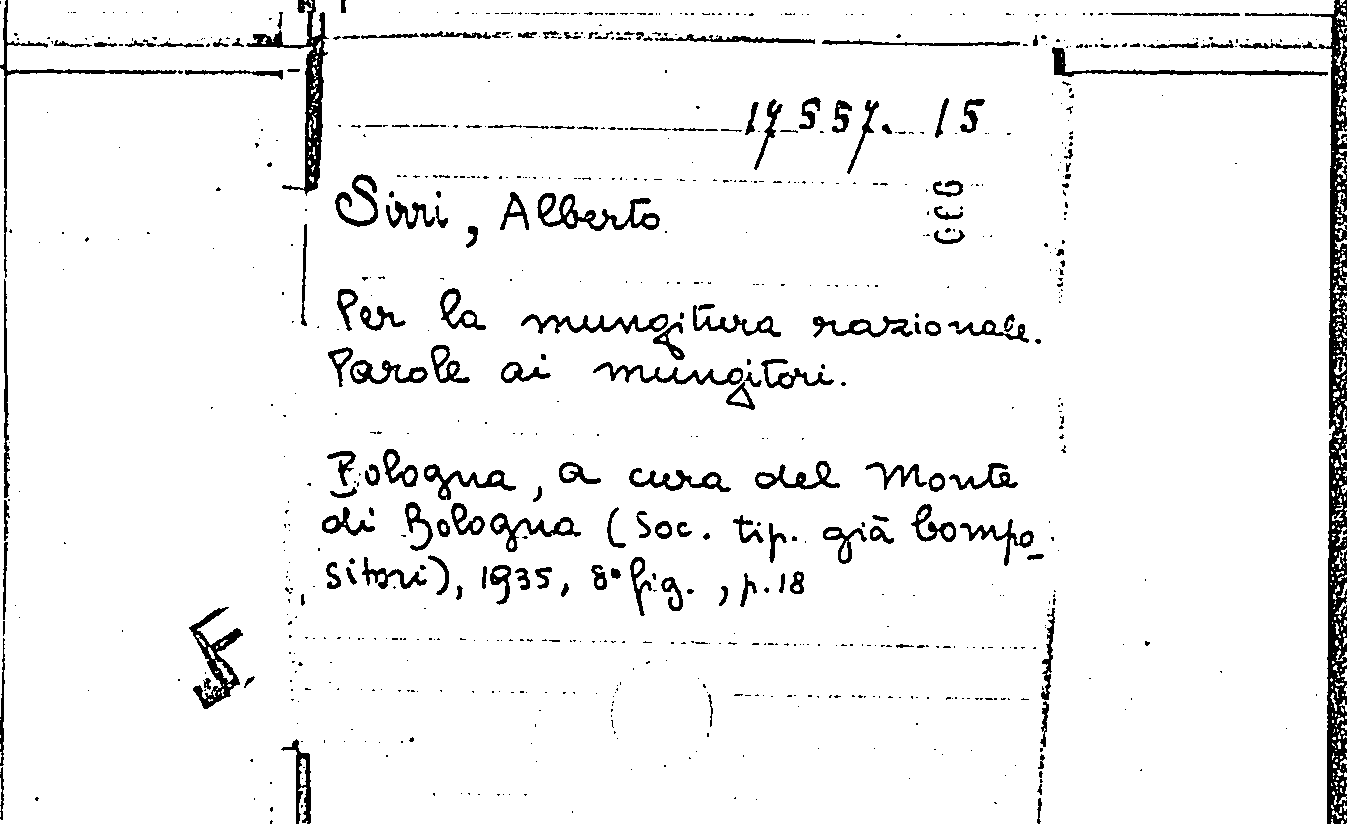 17557. 15
Sirri, Alberto
Per la mungitura razionale.
Parole ai mungitori.
Bologna, a cura del Monte
di Bologna (Soc. tip. già Compo-
sitori), 1935, 8° fig., p. 18